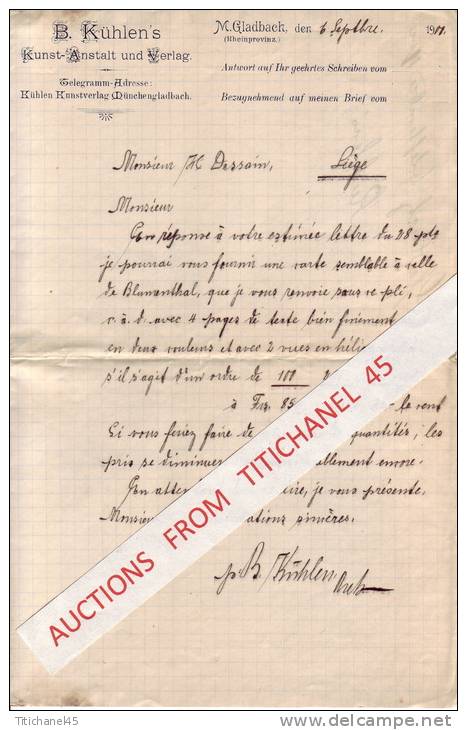 B. Kühlen's
Kunst-Anstalt und Verlag.
Telegramm-Adresse:
Kühlen Kunstverlag Münchengladbach.
M. Gladbach, den 6 Septbre. 1901.
(Rheinprovinz.)
Antwort auf Ihr geehrtes Schreiben vom
Bezugnehmend auf meinen Brief vom
Monsieur H Dessain, Liège
Monsieur
En réponse à votre estimée lettre du 28
je pourrai vous fournir une carte semblable à celle
de Blumenthal, que je vous renvoie sous ce pli,
c. à d. avec 4 pages de texte bien finement
en deux couleurs et avec 2 vues en
s'il s'agit d'un ordre de 100
à Frs. 85 le cent
Si vous feriez faire de quantités, les
prix se diminuer encore.
En atten je vous présente,
Monsieur ations sincères.
p. B. Kühlen
AUCTIONS FROM TITICHANEL 45
Titichanel45
delcampe.net